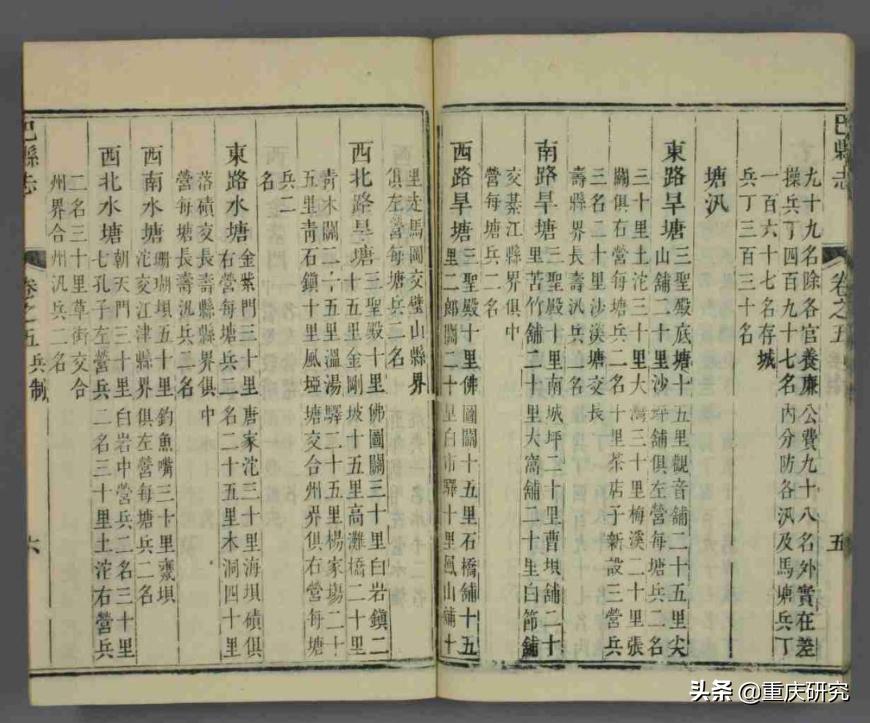 巴縣志
卷之五
五
九十九名除各官養廉公費九十八名外實在差
操兵丁四百九十七名內分防各汛及馬塘兵丁
一百六十七名存城
兵丁三百三十名
塘汛
東路旱塘
三聖殿底塘十五里觀音舖二十五里尖
山舖二十里沙坪舖俱左營每塘兵二名
三十里土沱三十里大灣三十里梅溪二十里張
關俱右營每塘兵二名十里茶店子新設三營兵
三名二十里沙溪塘交長
壽縣界長壽汛兵二名
南路旱塘
三聖殿十里南城坪二十里曹壩舖二十
里苦竹舖二十里大窩舖二十里白節舖
交綦江縣界俱中
營每塘兵二名
西路旱塘
三聖殿十里佛圖關十五里石橋舖十五
里二郎關二十里白市驛十里鳳山舖十
里走馬岡交璧山縣界
俱左營每塘兵二名
西北路旱塘
三聖殿十里佛圖關三十里白岩鎮二
十五里金剛坡十五里高灘橋二十里
青木關二十五里溫湯驛二十五里楊家場二十
五里青石鎮十里風埡塘交合州界俱右營每塘
兵二
名
東路水塘
金紫門三十里唐家沱三十里海壩磧俱
右營每塘兵二名二十五里木洞四十里
落磧交長壽縣界俱中
營每塘長壽汛兵二名
西南水塘
珊瑚壩五十里釣魚嘴三十里龔壩
沱交江津縣界俱左營每塘兵二名
西北水塘
朝天門三十里白岩中營兵二名三十里
七孔子左營兵二名三十里土沱右營兵
二名三十里草街交合
州界合州汛兵二名
巴縣志
卷之五
兵制
六
头条 @重庆研究